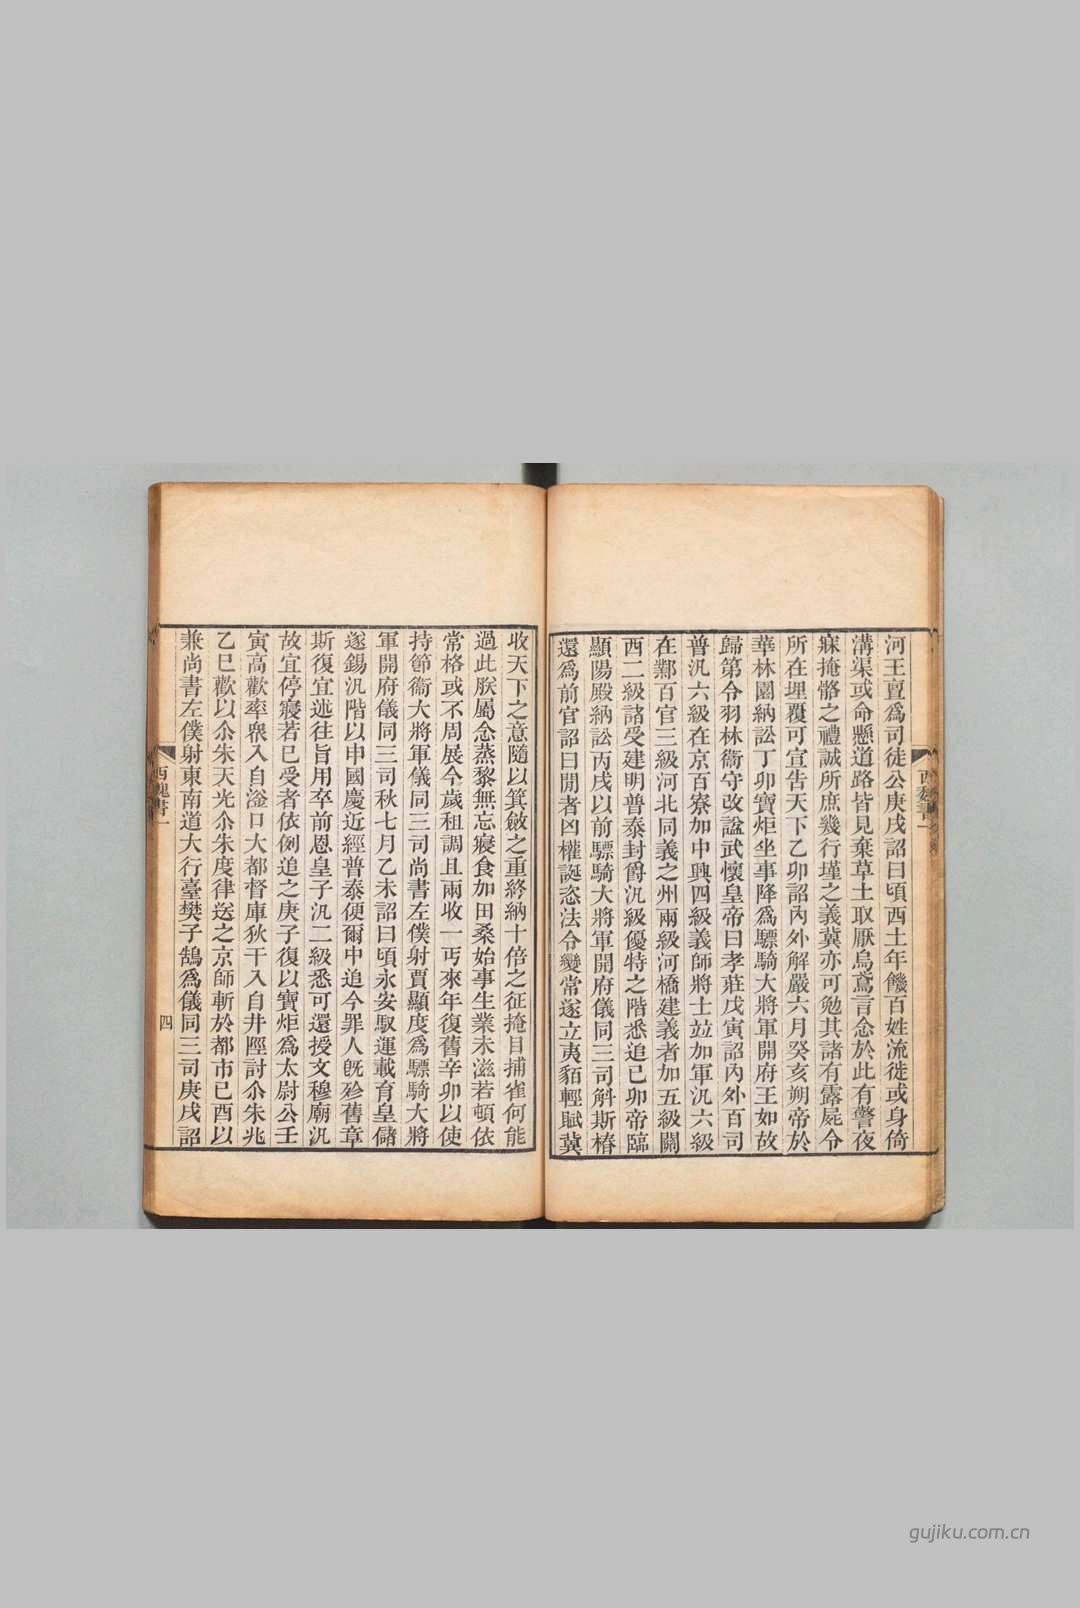 河王亶爲司徒公庚戌詔曰頃西土年饑百姓流徙或身倚
溝渠或命懸道路皆見棄草土取厭烏鳶言念於此有警夜
寐掩骼之禮誠所庶幾行墐之義冀亦可勉其諸有露屍令
所在埋覆可宣告天下乙卯詔內外解嚴六月癸亥朔帝於
華林園納訟丁卯寶炬坐事降爲驃騎大將軍開府王如故
歸第令羽林衞守改諡武懷皇帝曰孝莊戊寅詔內外百司
普汎六級在京百寮加中興四級義師將士竝加軍汎六級
在鄴百官三級河北同義之州兩級河橋建義者加五級關
西二級諸受建明普泰封爵汎級優特之階悉追己卯帝臨
顯陽殿納訟丙戌以前驃騎大將軍開府儀同三司斛斯椿
還爲前官詔曰閒者凶權誕恣法令變常遂立夷貊輕賦冀
收天下之意隨以箕斂之重終納十倍之征掩目捕雀何能
過此朕屬念蒸黎無忘寢食加田桑始事生業未滋若頓依
常格或不周展今歲租調且兩收一丐來年復舊辛卯以使
持節衞大將軍儀同三司尚書左僕射賈顯度爲驃騎大將
軍開府儀同三司秋七月乙未詔曰頃永安馭運載育皇儲
遂錫汎階以申國慶近經普泰便爾中追今罪人旣殄舊章
斯復宜述往旨用卒前恩皇子汎二級悉可還授文穆廟汎
故宜停寢若已受者依例追之庚子復以寶炬爲太尉公壬
寅高歡率衆入自滏口大都督庫狄干入自井陘討尒朱兆
乙巳歡以尒朱天光尒朱度律送之京師斬於都市已酉以
兼尚書左僕射東南道大行臺樊子鵠爲儀同三司庚戌詔
西魏書一
四
gujiku.com.cn